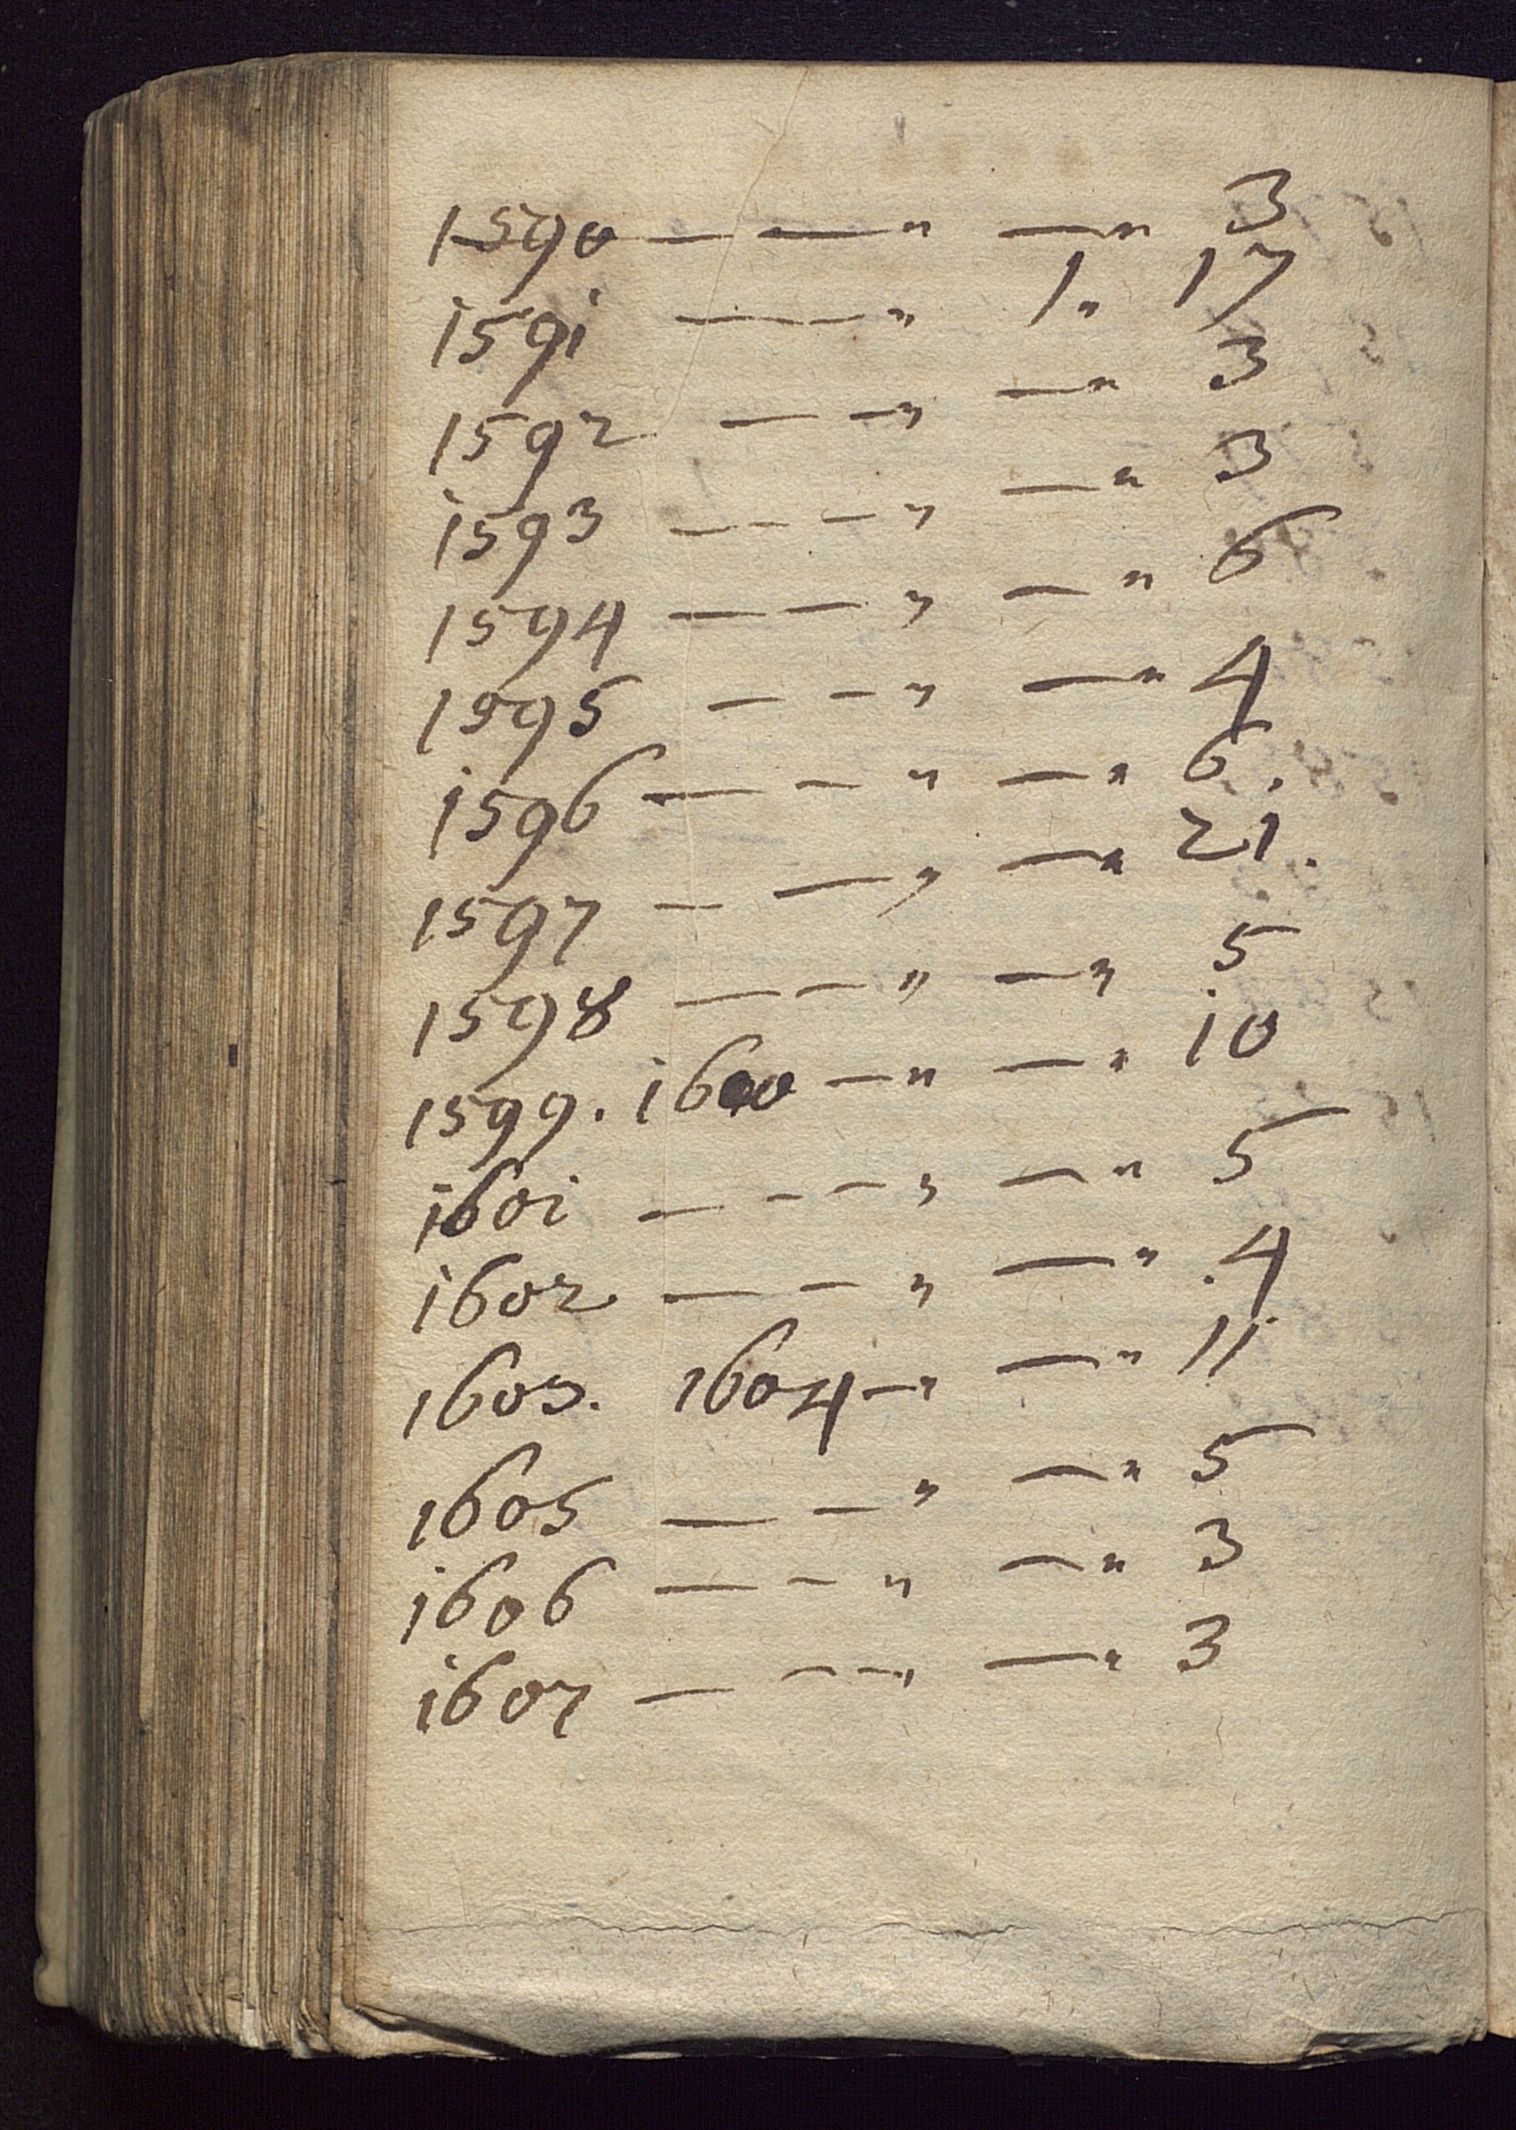 1590 — — " — " 3
1591 — — " 1 " 17
1592 — — " — " 3
1593 — - — " — " 3
1594 — — " — " 6
1595 — — " — " 4
1596 — — " — " 6.
1597 — — " — " 21.
1598 — — " — " 5
1599. 1600 — " — " 10
1601 — - — " — " 5
1602 — — " — " 4
1603. 1604 — " — " 11
1605 — — " — " 5
1606 — — " — " 3
1607 — — — " — " 3